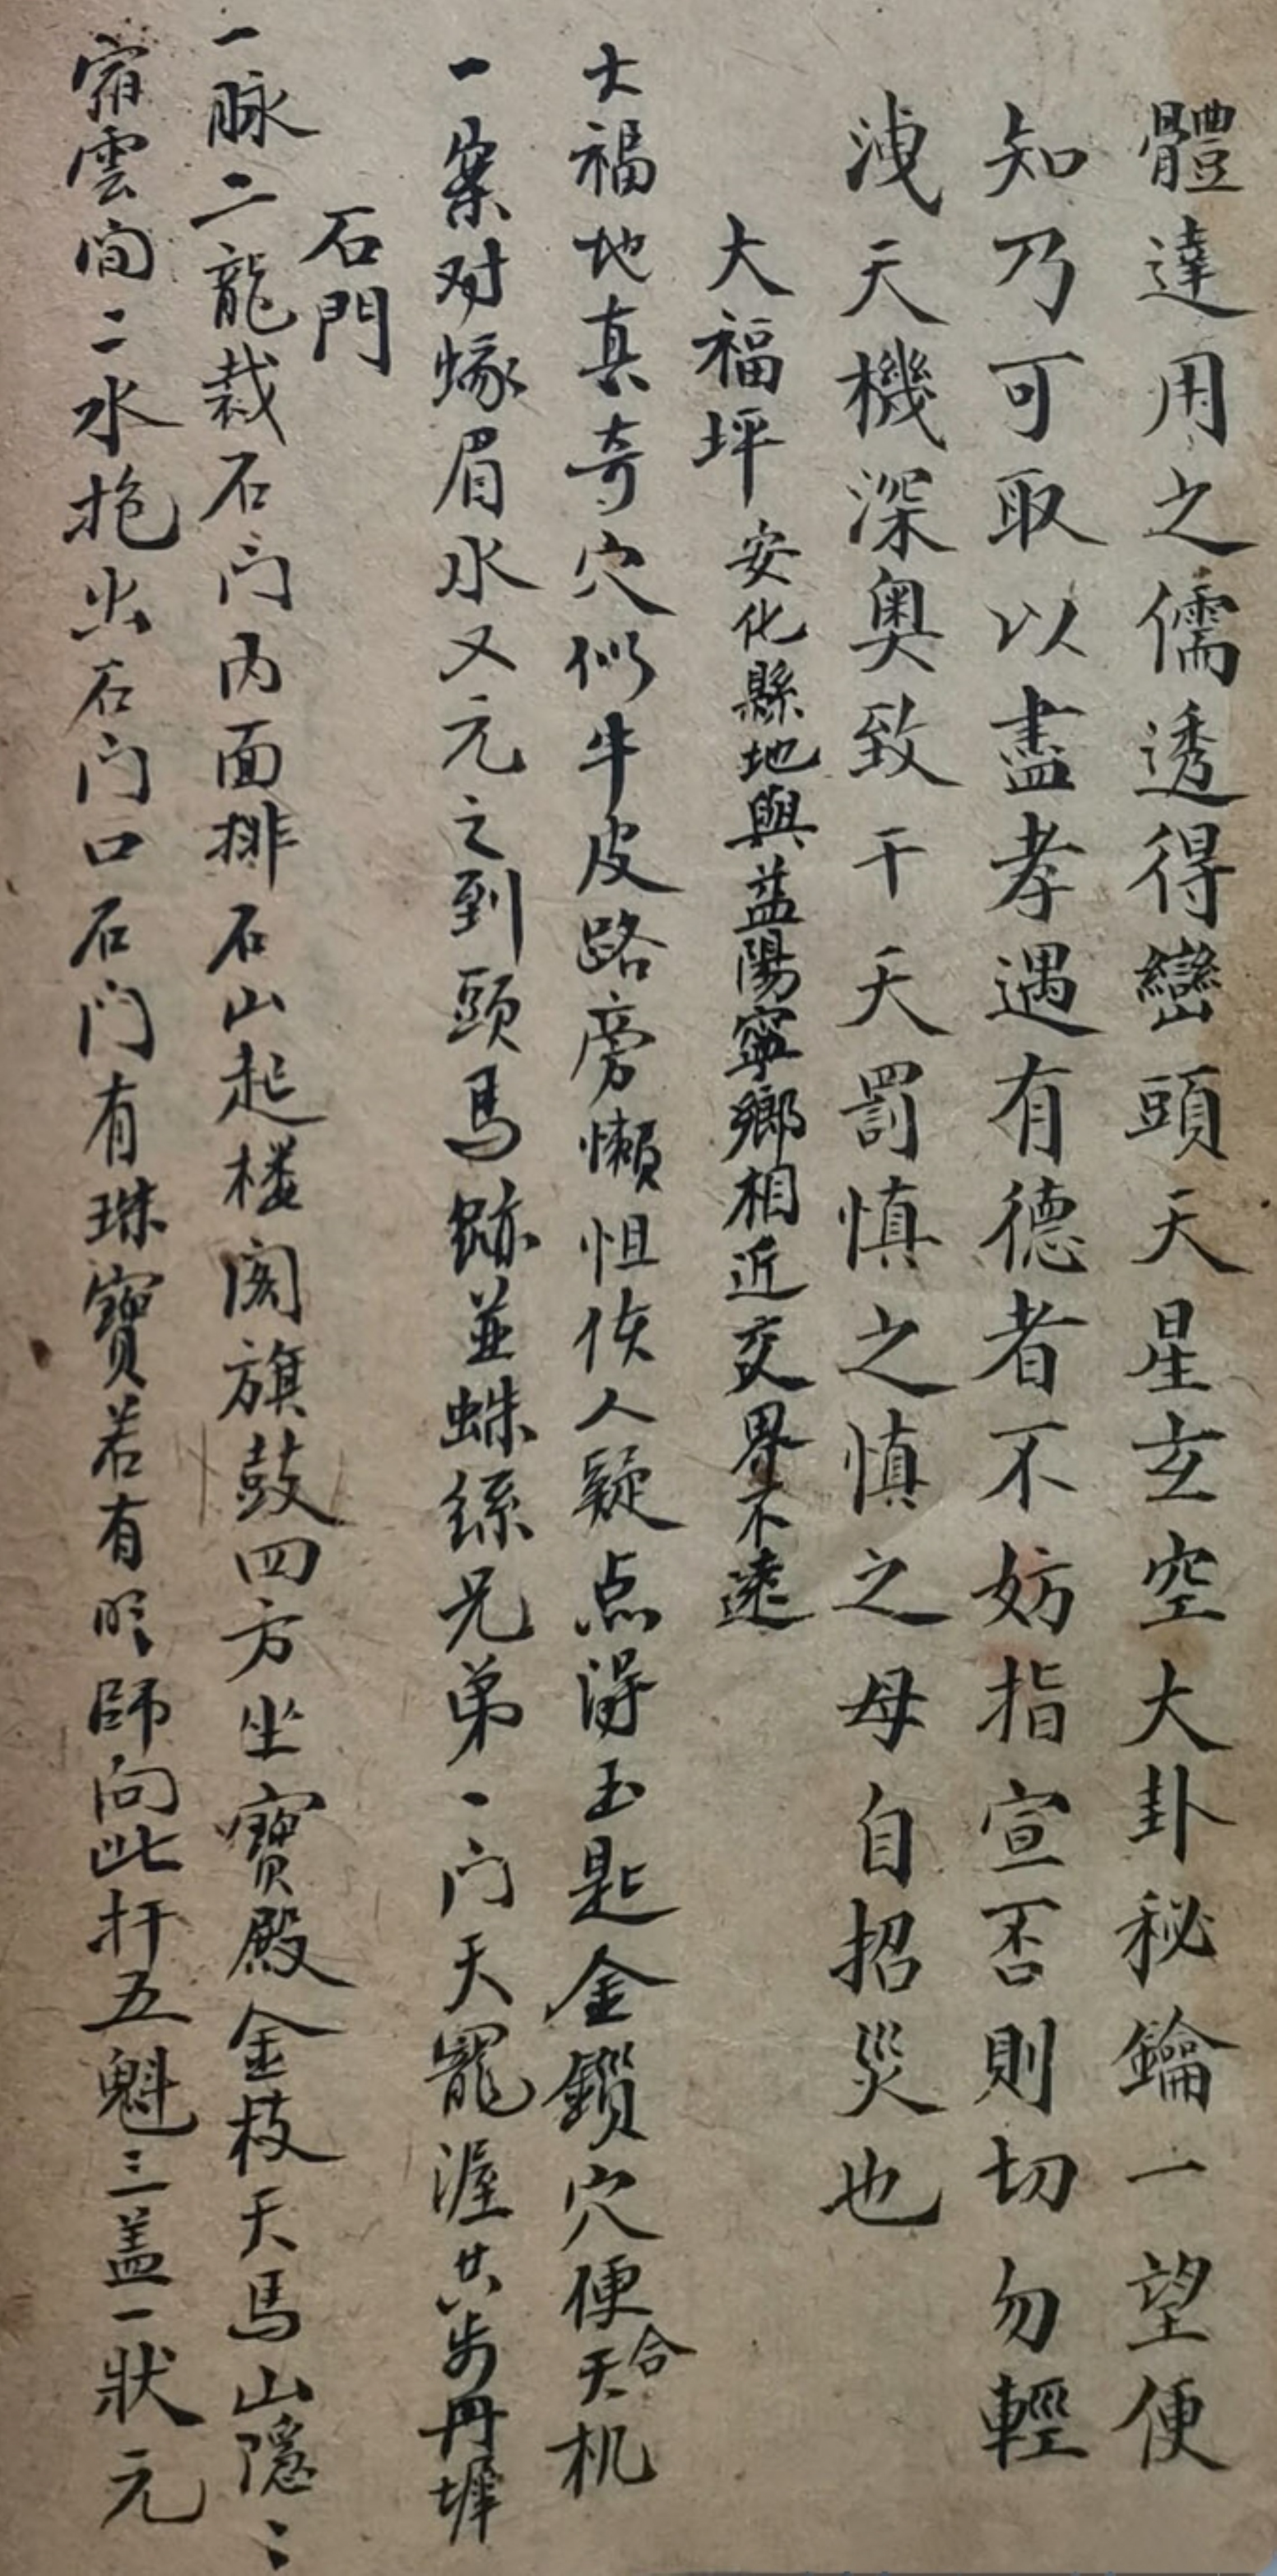 體達用之儒透得巒頭天星玄空大卦秘鑰一望便
知乃可取以盡孝遇有德者不妨指宣否則切勿輕
洩天機深奥致干天罰慎之慎之母自招災也
大福坪 安化縣地與益陽寧鄉相近交界不遠
大福地真奇穴似牛皮路旁懶怛佚人疑点得玉匙金鎖穴便合天机
一案对㟲眉水又元之到頭馬跡並蛛絲兄弟一门天寵渥共步丹墀
石門
一脉二龍裁石门内面排石山起楼阁旗鼓四方坐寶殿金枝天馬山隱〻
宿雲间二水抱出石门口石门有珠寶若有明師向此扦五魁三盖一狀元